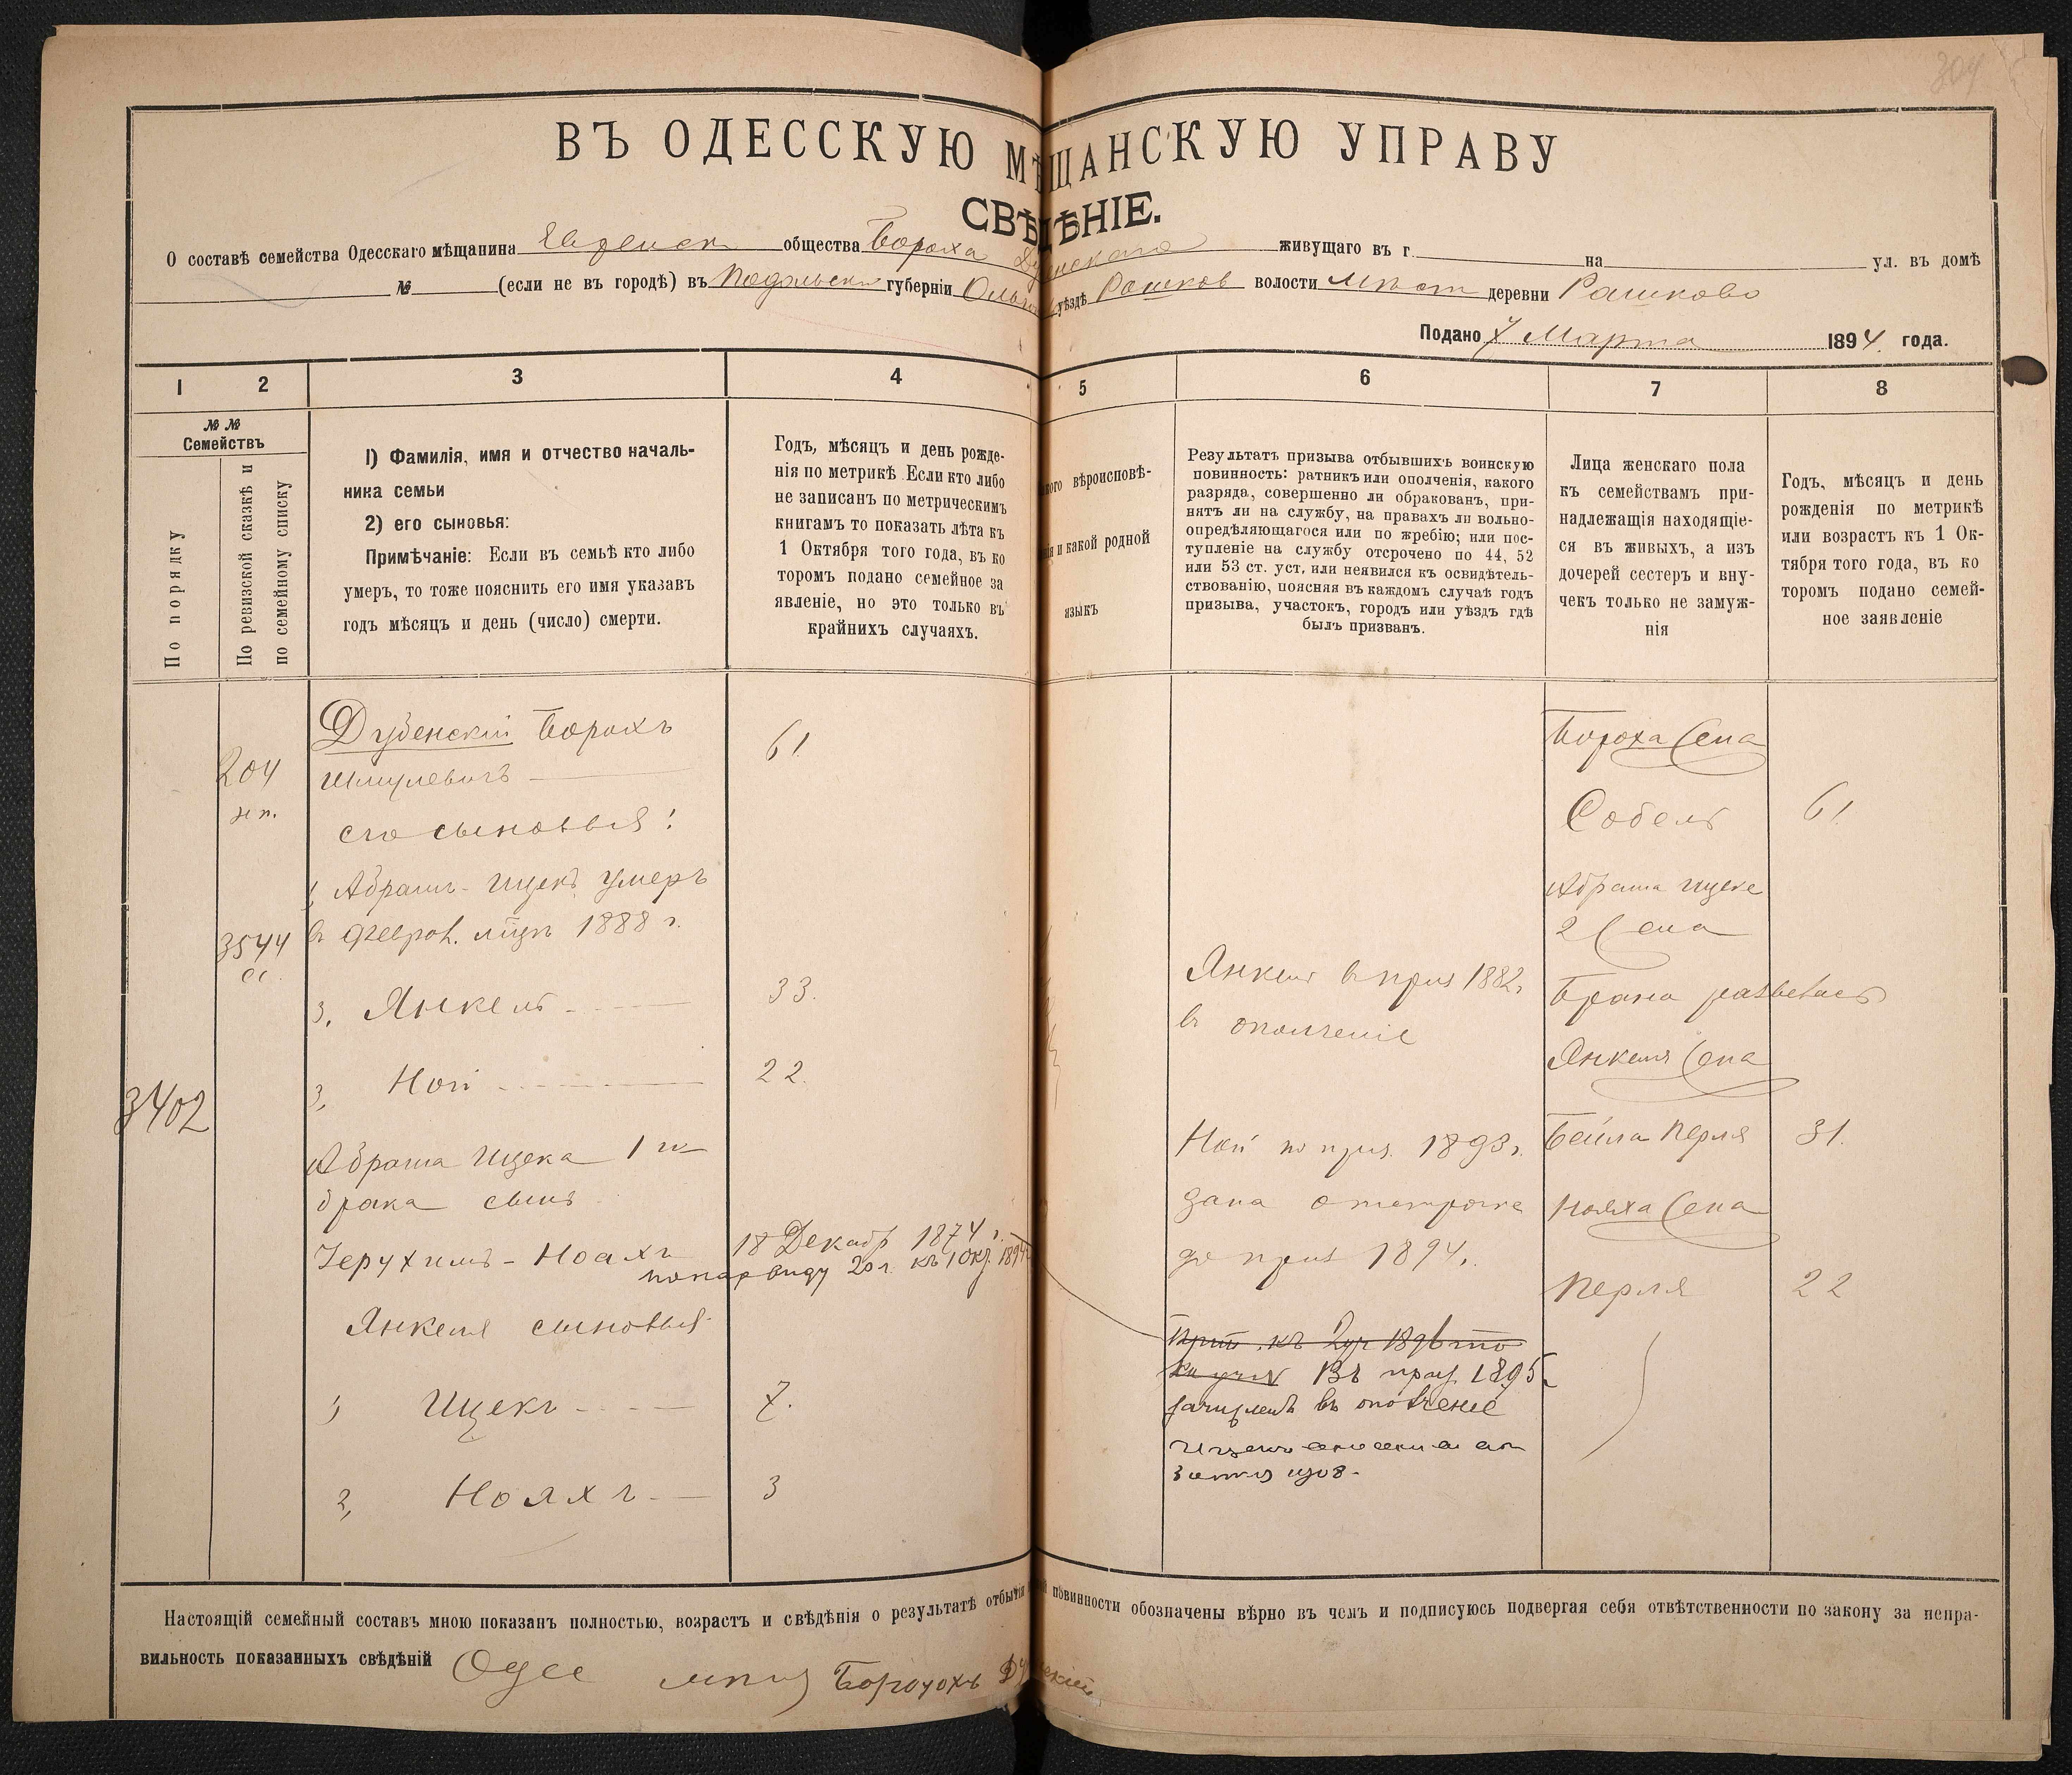 304
ВЪ ОДЕССКУЮ МѢЩАНСКУЮ УПРАВУ
СВѢДѢНІЕ.
О составѣ семейства Одесскаго мѣщанина Еврейск общества Бороха Дубенскаго живущаго въ г. на ул. въ домѣ
№ (если не въ городѣ) въ Подольской губерніи Ольг уѣздѣ Рашков волости Мѣст деревни Рашково
Подано 7 Марта 1894 года.
1 2 3 4 5 6 7 8
№ №
Семействъ
По порядку
По ревизской сказкѣ и
по семейному списку
1) Фамилія, имя и отчество началь-
ника семьи
2) его сыновья:
Примѣчаніе: Если въ семьѣ кто либо
умеръ, то тоже пояснить его имя указавъ
годъ мѣсяцъ и день (число) смерти.
Годъ, мѣсяцъ и день рожде-
нія по метрикѣ Если кто либо
не записанъ по метрическимъ
книгамъ то показать лѣта къ
1 Октября того года, въ ко
торомъ подано семейное за
явленіе, но это только въ
крайнихъ случаяхъ.
вѣроисповѣ-
и какой родной
языкъ
Результатъ призыва отбывшихъ воинскую
повинность: ратникъ или ополченія, какого
разряда, совершенно ли обракованъ, при-
нятъ ли на службу, на правахъ ли вольно-
опредѣляющагося или по жребію; или пос-
тупленіе на службу отсрочено по 44, 52
или 53 ст. уст. или неявился къ освидѣтель-
ствованію, поясняя въ каждомъ случаѣ годъ
призыва, участокъ, городъ или уѣздъ гдѣ
былъ призванъ.
Лица женскаго пола
къ семействамъ при-
надлежащія находящіе-
ся въ живыхъ, а изъ
дочерей сестеръ и вну-
чекъ только не замуж-
нія
Годъ, мѣсяцъ и день
рожденія по метрикѣ
или возрастъ къ 1 Ок-
тября того года, въ ко
торомъ подано семей-
ное заявленіе
204
3544
3402
Дубенскій Борохъ
Шмулевичъ
61
его сыновья:
1, Абрамъ-Ицекъ умеръ
в Феврал. мцѣ 1888 г.
3, Янкель 33.
3, Ной 22.
Абрама Ицека 1 го
брака сынъ
Іерухимъ-Ноахъ 18 Декабр 1874 г.
по нар виду 20 л. къ 1 Окт. 1894
Янкеля сыновья
1 Ицекъ 7.
2, Нояхъ 3
Янкель в приз 1882
въ ополченіе
Ной по приз. 1893 г.
дана отсрочка
до приз 1894 г.
Въ приз. 1895
зачисленъ въ ополченіе
Бороха Жена
Собель 61
Абрама Ицека
2 Жена
Брана развелась
Янкеля Жена
Бейла Перля 31.
Нояха Жена
Перля 22
Настоящій семейный составъ мною показанъ полностью, возрастъ и свѣдѣнія о результатѣ отбытія повинности обозначены вѣрно въ чемъ и подписуюсь подвергая себя отвѣтственности по закону за непра-
вильность показанныхъ свѣдѣній Одес